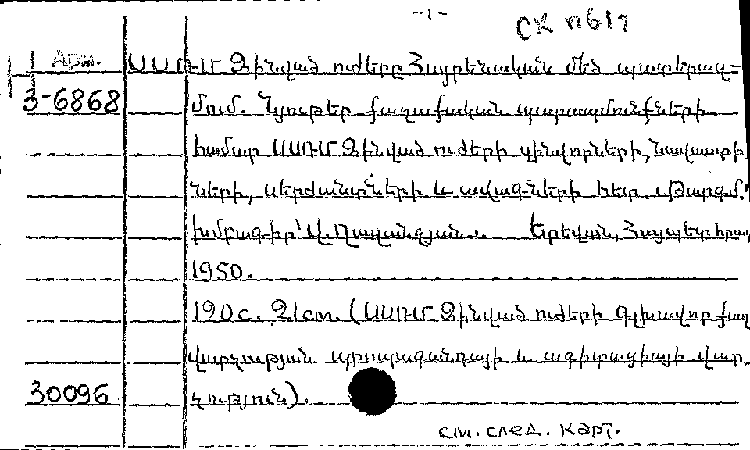 -1-
СК п617
Арм. ՍՍՌՄ Զինված ուժերը Հայրենական մեծ պատերազ-
3-6868 մում. Նյութեր քաղաքական պարապմունքների
համար ՍՍՌՄ Զինված ուժերի զինվորների, նավաստի
ների, սերժանտների և ավագների հետ: Թարգմ.՝
խմբագիր՝ Վ. Ղազանչյան.. Երևան, Հայպետհրատ,
1950.
190с. 21см. (ՍՍՌՄ Զինված ուժերի Գլխավոր քաղ
վարչության պրոպագանդայի և ագիտացիայի վար
30096 չություն).
см. след. карт.